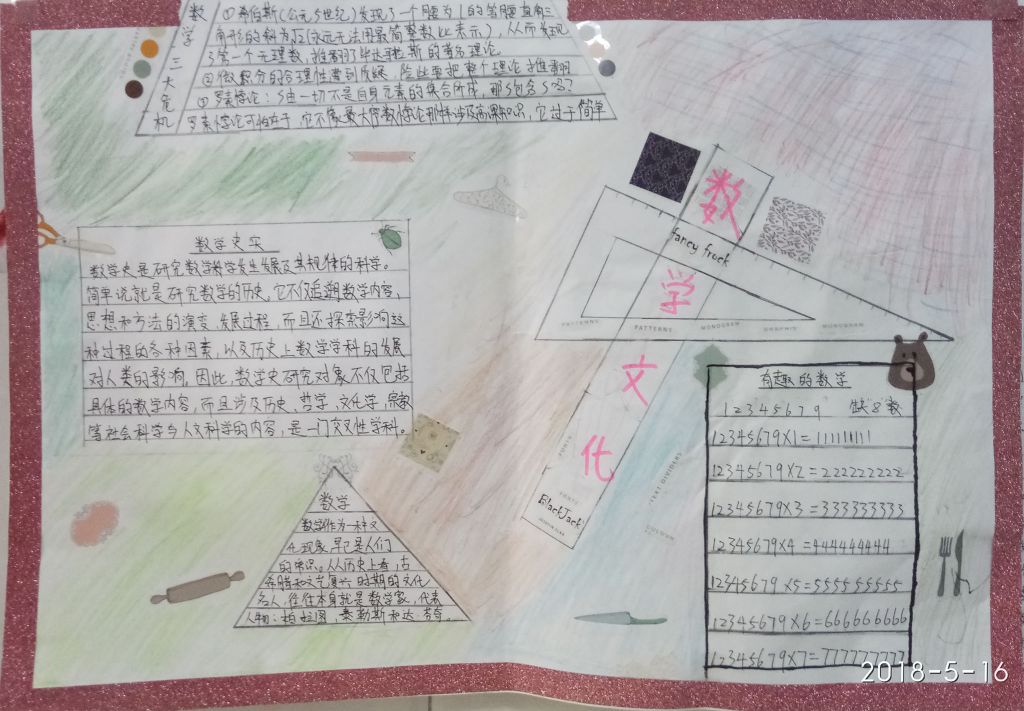 数学三大危机
①希伯斯(公元5世纪)发现了一个腰为1的等腰直角三
角形的斜为√2(永远无法用最简整数比表示),从而发现
了第一个无理数,推翻了毕达哥拉斯的著名理论。
②微积分的合理性遭到质疑,险些要把整个理论推翻
①罗素悖论:S由一切不是自身元素的集合所成,那S包含S吗?
罗素悖论可怕在于,它不像最大序数悖论那样涉及高深知识,它过于简单
数学文化
fancy frock
PATTERNS
PATTERNS
MONOGRAM
GRAPHIC
MONOGRAM
FONTS
FONTS
BlackJack
TEXT DIVIDERS
数学史实
数学史是研究数学科学发生发展及其规律的科学。
简单说就是研究数学的历史。它不仅追溯数学内容、
思想和方法的演变、发展过程,而且还探索影响这
种过程的各种因素,以及历史上数学学科的发展
对人类的影响,因此,数学史研究对象不仅包括
具体的数学内容,而且涉及历史、哲学,文化学,宗教
等社会科学与人文科学的内容,是一门交叉性学科。
数学
数学作为一种文
化现象,早已是人们
的常识。从历史上看,古
希腊和文艺复兴时期的文化
名人,往往本身就是数学家,代表
人物:柏拉图,泰勒斯和达·芬奇。
有趣的数学
12345679 缺8数
12345679×1=111111111
12345679×2=222222222
12345679×3=333333333
12345679×4=444444444
12345679×5=555555555
12345679×6=666666666
12345679×7=777777777
2018-5-16